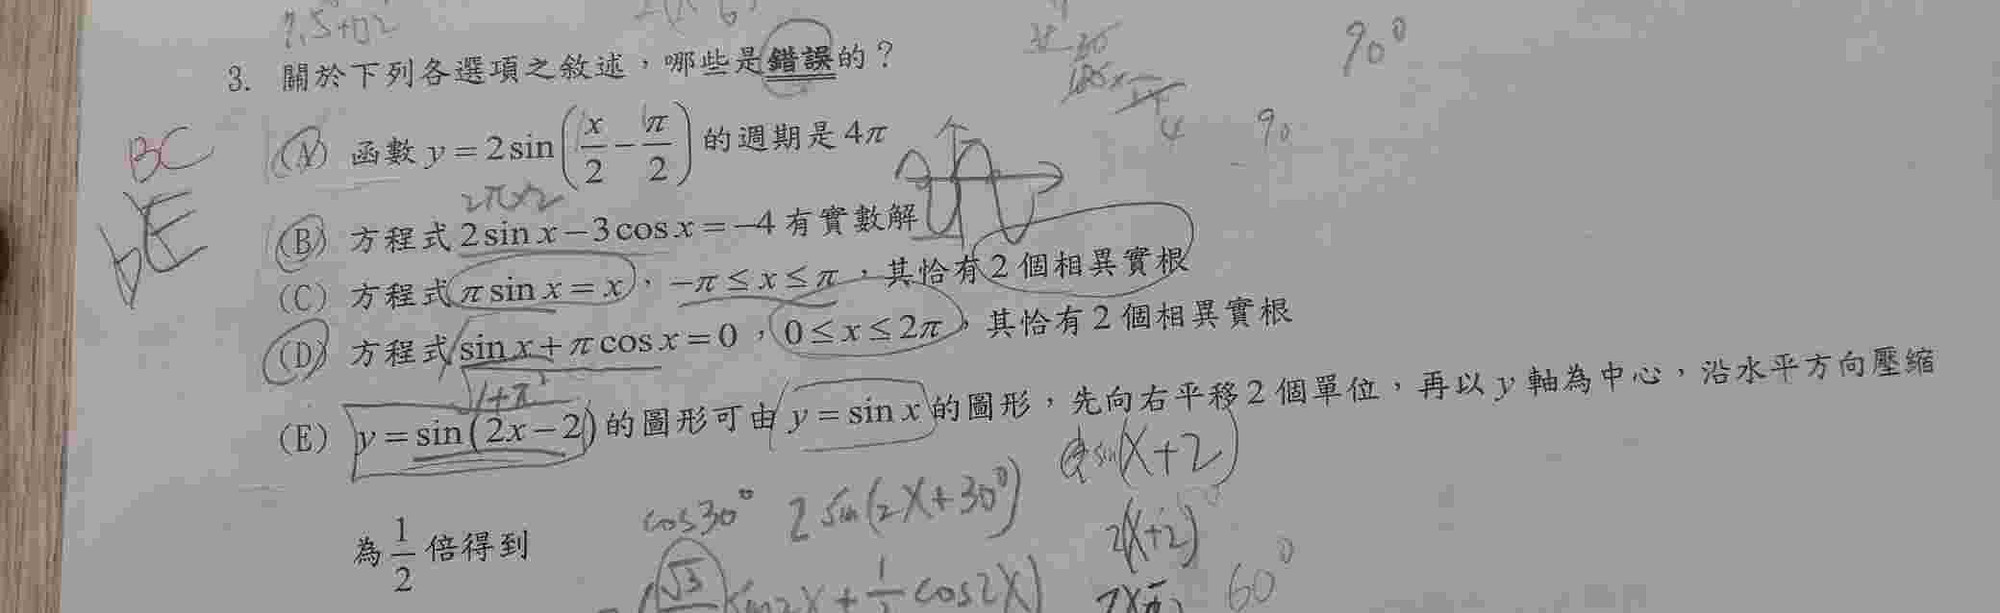 3. 關於下列各選項之敘述，哪些是錯誤的？
(A) 函數 y = 2 sin(x/2 − π/2) 的週期是 4π
BC
2π×2
(B) 方程式 2 sin x − 3 cos x = −4 有實數解
DE
(C) 方程式 π sin x = x，−π ≤ x ≤ π，其恰有 2 個相異實根
(D) 方程式 sin x + π cos x = 0，0 ≤ x ≤ 2π，其恰有 2 個相異實根
1+π²
(E) y = sin(2x − 2) 的圖形可由 y = sin x 的圖形，先向右平移 2 個單位，再以 y 軸為中心，沿水平方向壓縮
為 1/2 倍得到
90°
90
sin(x+2)
cos30° 2 sin(2x+30°)
2(x+2)
60°